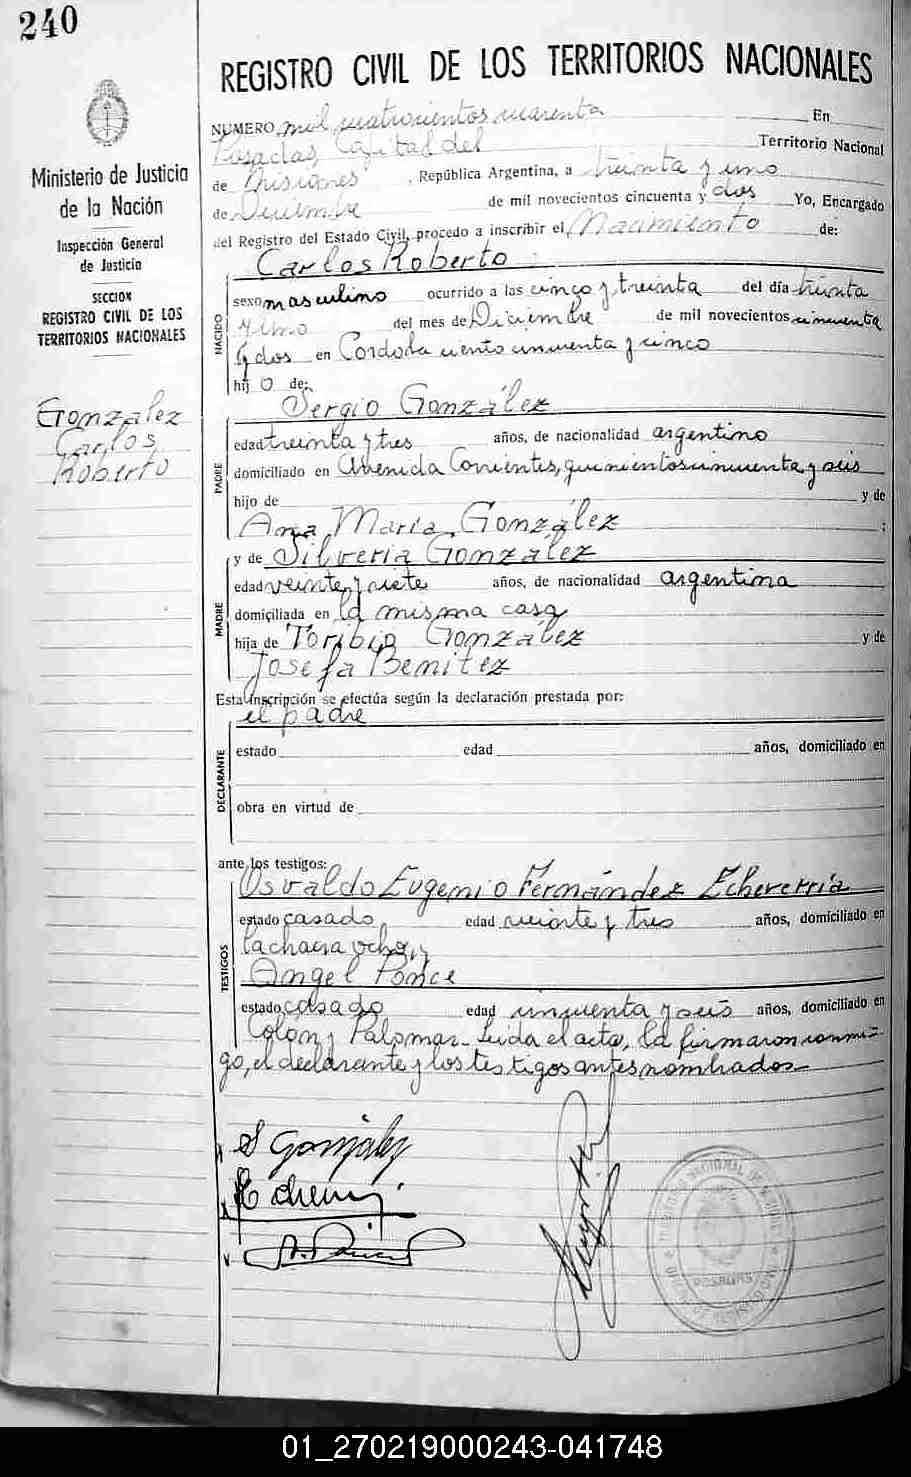 240
REGISTRO CIVIL DE LOS TERRITORIOS NACIONALES
Ministerio de Justicia
de la Nación
Inspección General
de Justicia
SECCION
REGISTRO CIVIL DE LOS
TERRITORIOS NACIONALES
Gonzalez
Carlos
Roberto
NUMERO mil cuatrocientos cuarenta En
Posadas, Capital del Territorio Nacional
de Misiones, República Argentina, a treinta y uno
de Diciembre de mil novecientos cincuenta y dos Yo, Encargado
del Registro del Estado Civil, procedo a inscribir el Nacimiento de:
NACIDO
Carlos Roberto
sexo masculino ocurrido a las cinco y treinta del día treinta
y uno del mes de Diciembre de mil novecientos cincuenta
y dos en Cordoba ciento cincuenta y cinco
hij o de:
PADRE
Sergio González
edad treinta y tres años, de nacionalidad argentino
domiciliado en Avenida Corrientes, quinientos cincuenta y seis
hijo de y de
Ana María González ;
MADRE
y de Silveria González
edad veinte y siete años, de nacionalidad argentina
domiciliada en la misma casa
hija de Toribio González y de
Josefa Benitez
Esta inscripción se efectúa según la declaración prestada por:
el padre
DECLARANTE
estado edad años, domiciliado en
obra en virtud de
ante los testigos:
TESTIGOS
Osvaldo Eugenio Fernández Echeverría
estado casado edad veinte y tres años, domiciliado en
la chacra ocho, y
Angel Ponce
estado casado edad cincuenta y seis años, domiciliado en
Colón y Palomar. Leida el acta, la firmaron conmi-
go, el declarante y los testigos antes nombrados
S Gonzalez
POSADAS
01_270219000243-041748